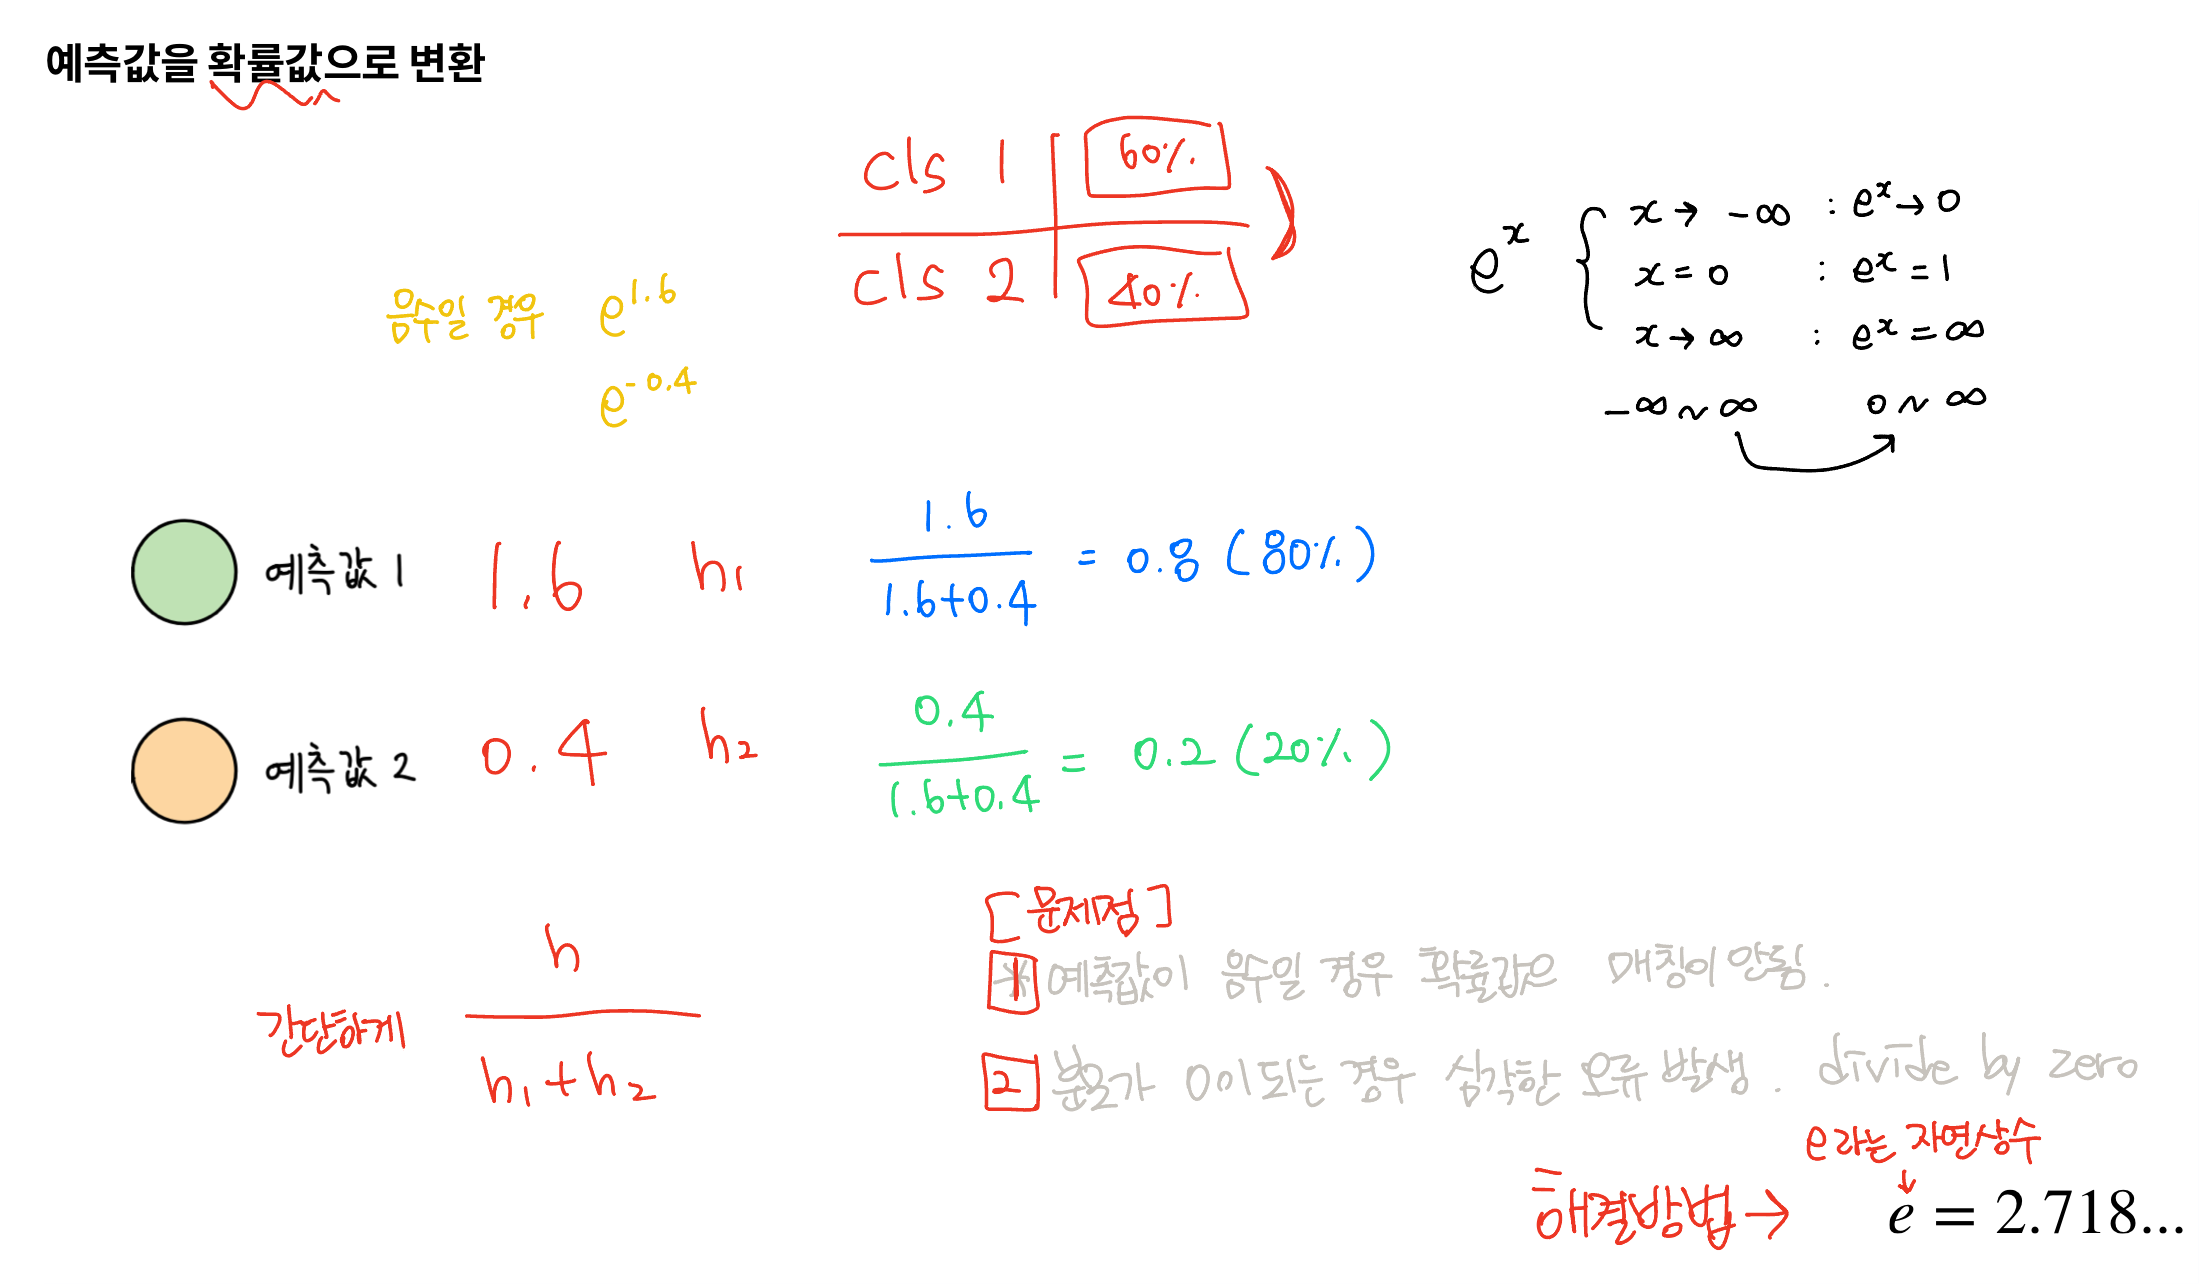 예측값을 확률값으로 변환
cls 1 60%
cls 2 40%
e^x
x → -∞ : e^x → 0
x = 0 : e^x = 1
x → ∞ : e^x = ∞
-∞ ~ ∞ 0 ~ ∞
음수일 경우 e^1.6
e^-0.4
예측값 1 1.6 h₁
1.6
1.6+0.4
= 0.8 (80%)
예측값 2 0.4 h₂
0.4
1.6+0.4
= 0.2 (20%)
간단하게
h
h₁+h₂
[문제점]
1 예측값이 음수일 경우 확률값은 매칭이 안됨.
2 분모가 0이 되는 경우 심각한 오류 발생. divide by zero
e라는 자연상수
↓
해결방법 → e = 2.718...